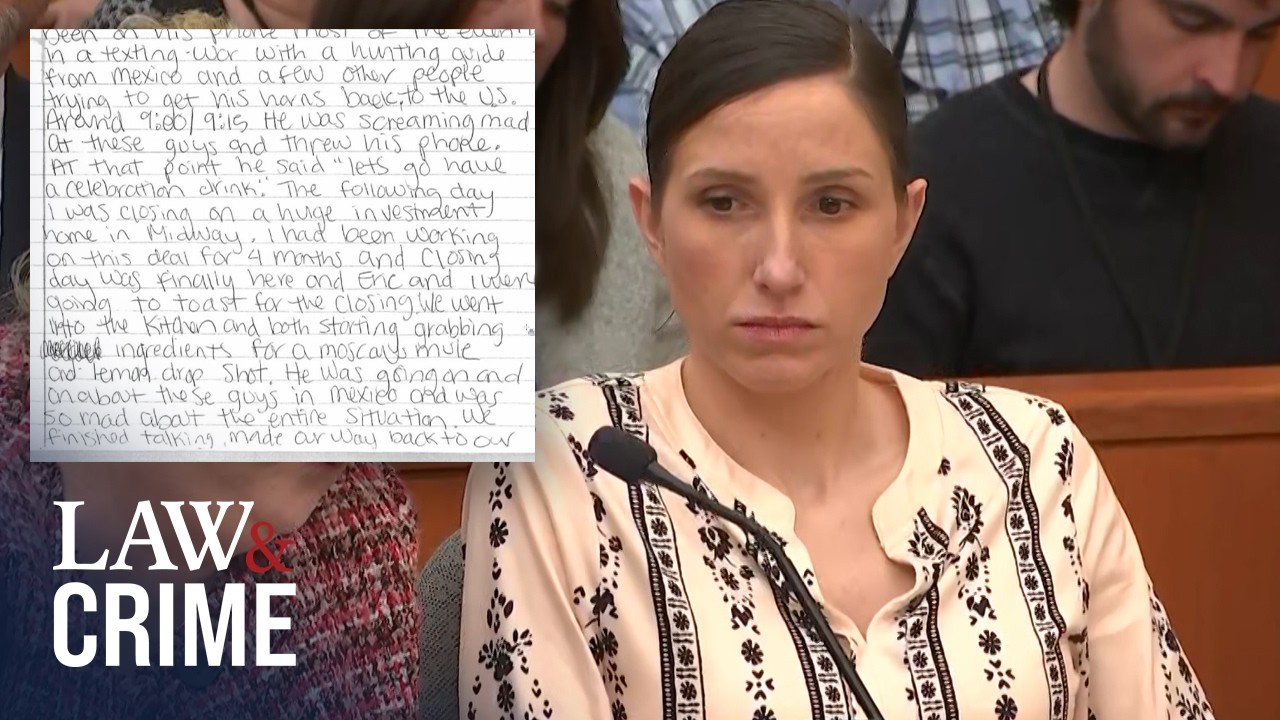 been on his phone most of the evening
in a texting war with a hunting guide
from mexico and a few other people
trying to get his horns back to the U.S.
Around 9:00/9:15 He was screaming mad
at these guys and threw his phone.
AT that point he said "lets go have
a celebration drink". The following day
I was closing on a huge investment
home in Midway. I had been working
on this deal for 4 months and Closing
day was finally here and Eric and I were
going to toast for the closing. We went
into the kitchen and both starting grabbing
ingredients for a moscow mule
and lemon drop shot. He was going on and
on about these guys in mexico and was
so mad about the entire situation. We
finished talking, made our way back to our
LAW&
CRIME